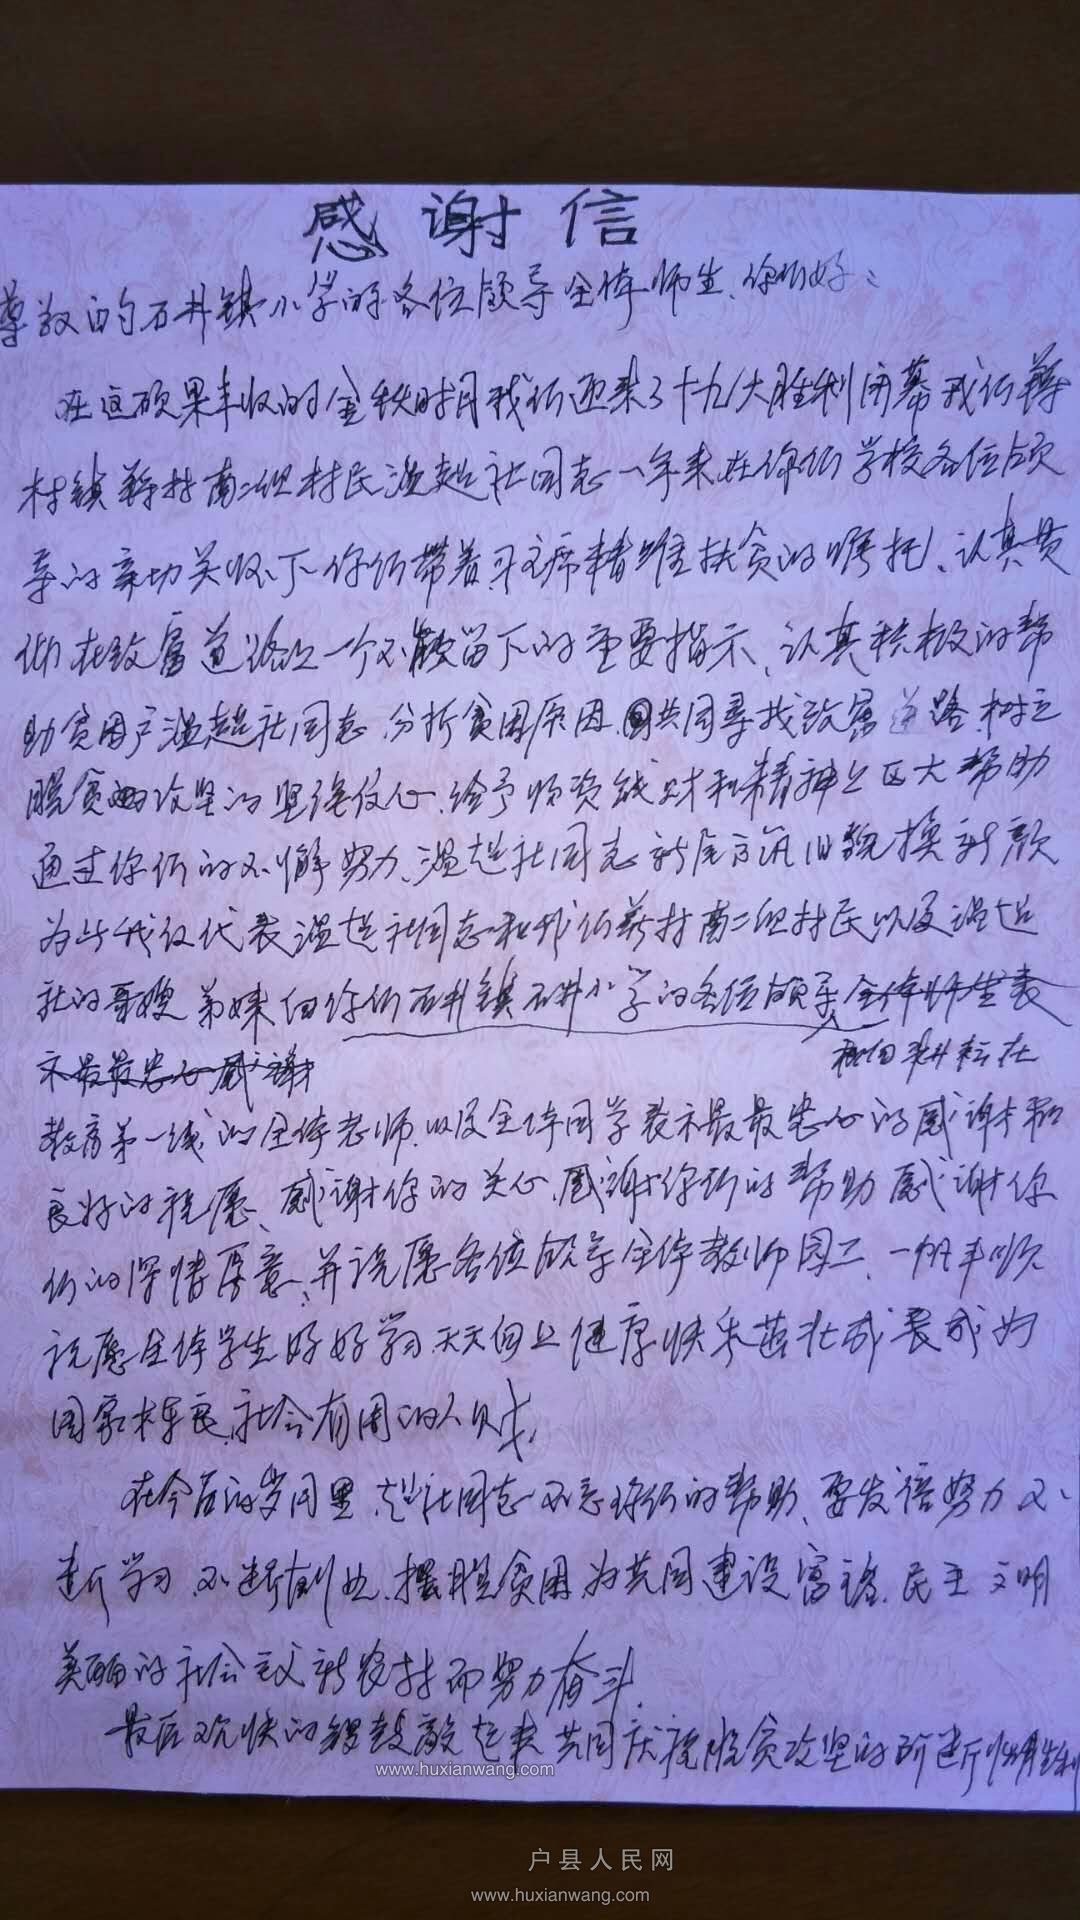 感谢信
尊敬的石井镇小学的各位领导全体师生、你们好:
在这硕果丰收的金秋时月我们迎来了十九大胜利闭幕我们蒋
村镇蒋村南二组村民温超社同志一年来在你们学校各位领
导的亲切关怀下你们带着习主席精准扶贫的嘱托、认真贯
彻在致富道路上一个不能留下的重要指示、认真积极的帮
助贫困户温超社同志、分析贫困原因、共同寻找致富道路、树立
脱贫攻坚的坚强信心、给予物资钱财和精神上巨大帮助
通过你们的不懈努力、温超社同志新房方筑旧貌换新颜
为此我仅代表温超社同志和我们蒋村南二组村民以及温超
社的哥嫂弟妹向你们石井镇石井小学的各位领导全体师生表
示最最忠心感谢
和向耕耘在
教育第一线的全体老师、以及全体同学表示最最忠心的感谢和
良好的祝愿、感谢你的关心、感谢你们的帮助感谢你
们的深情厚意、并祝愿各位领导全体教师员工、一帆丰顺
祝愿全体学生好好学习、天天向上健康快乐茁壮成长成为
国家栋良、社会有用的人才
在今后的岁月里、超社同志不忘你们的帮助、要发倍努力不
断学习、不断创业、摆脱贫困、为共同建设富裕、民主文明
美丽的社会主义新农村而努力奋斗、
最后欢快的锣鼓敲起来共同庆祝脱贫攻坚的不断胜利
www.huxianwang.com
户县人民网
www.huxianwang.com